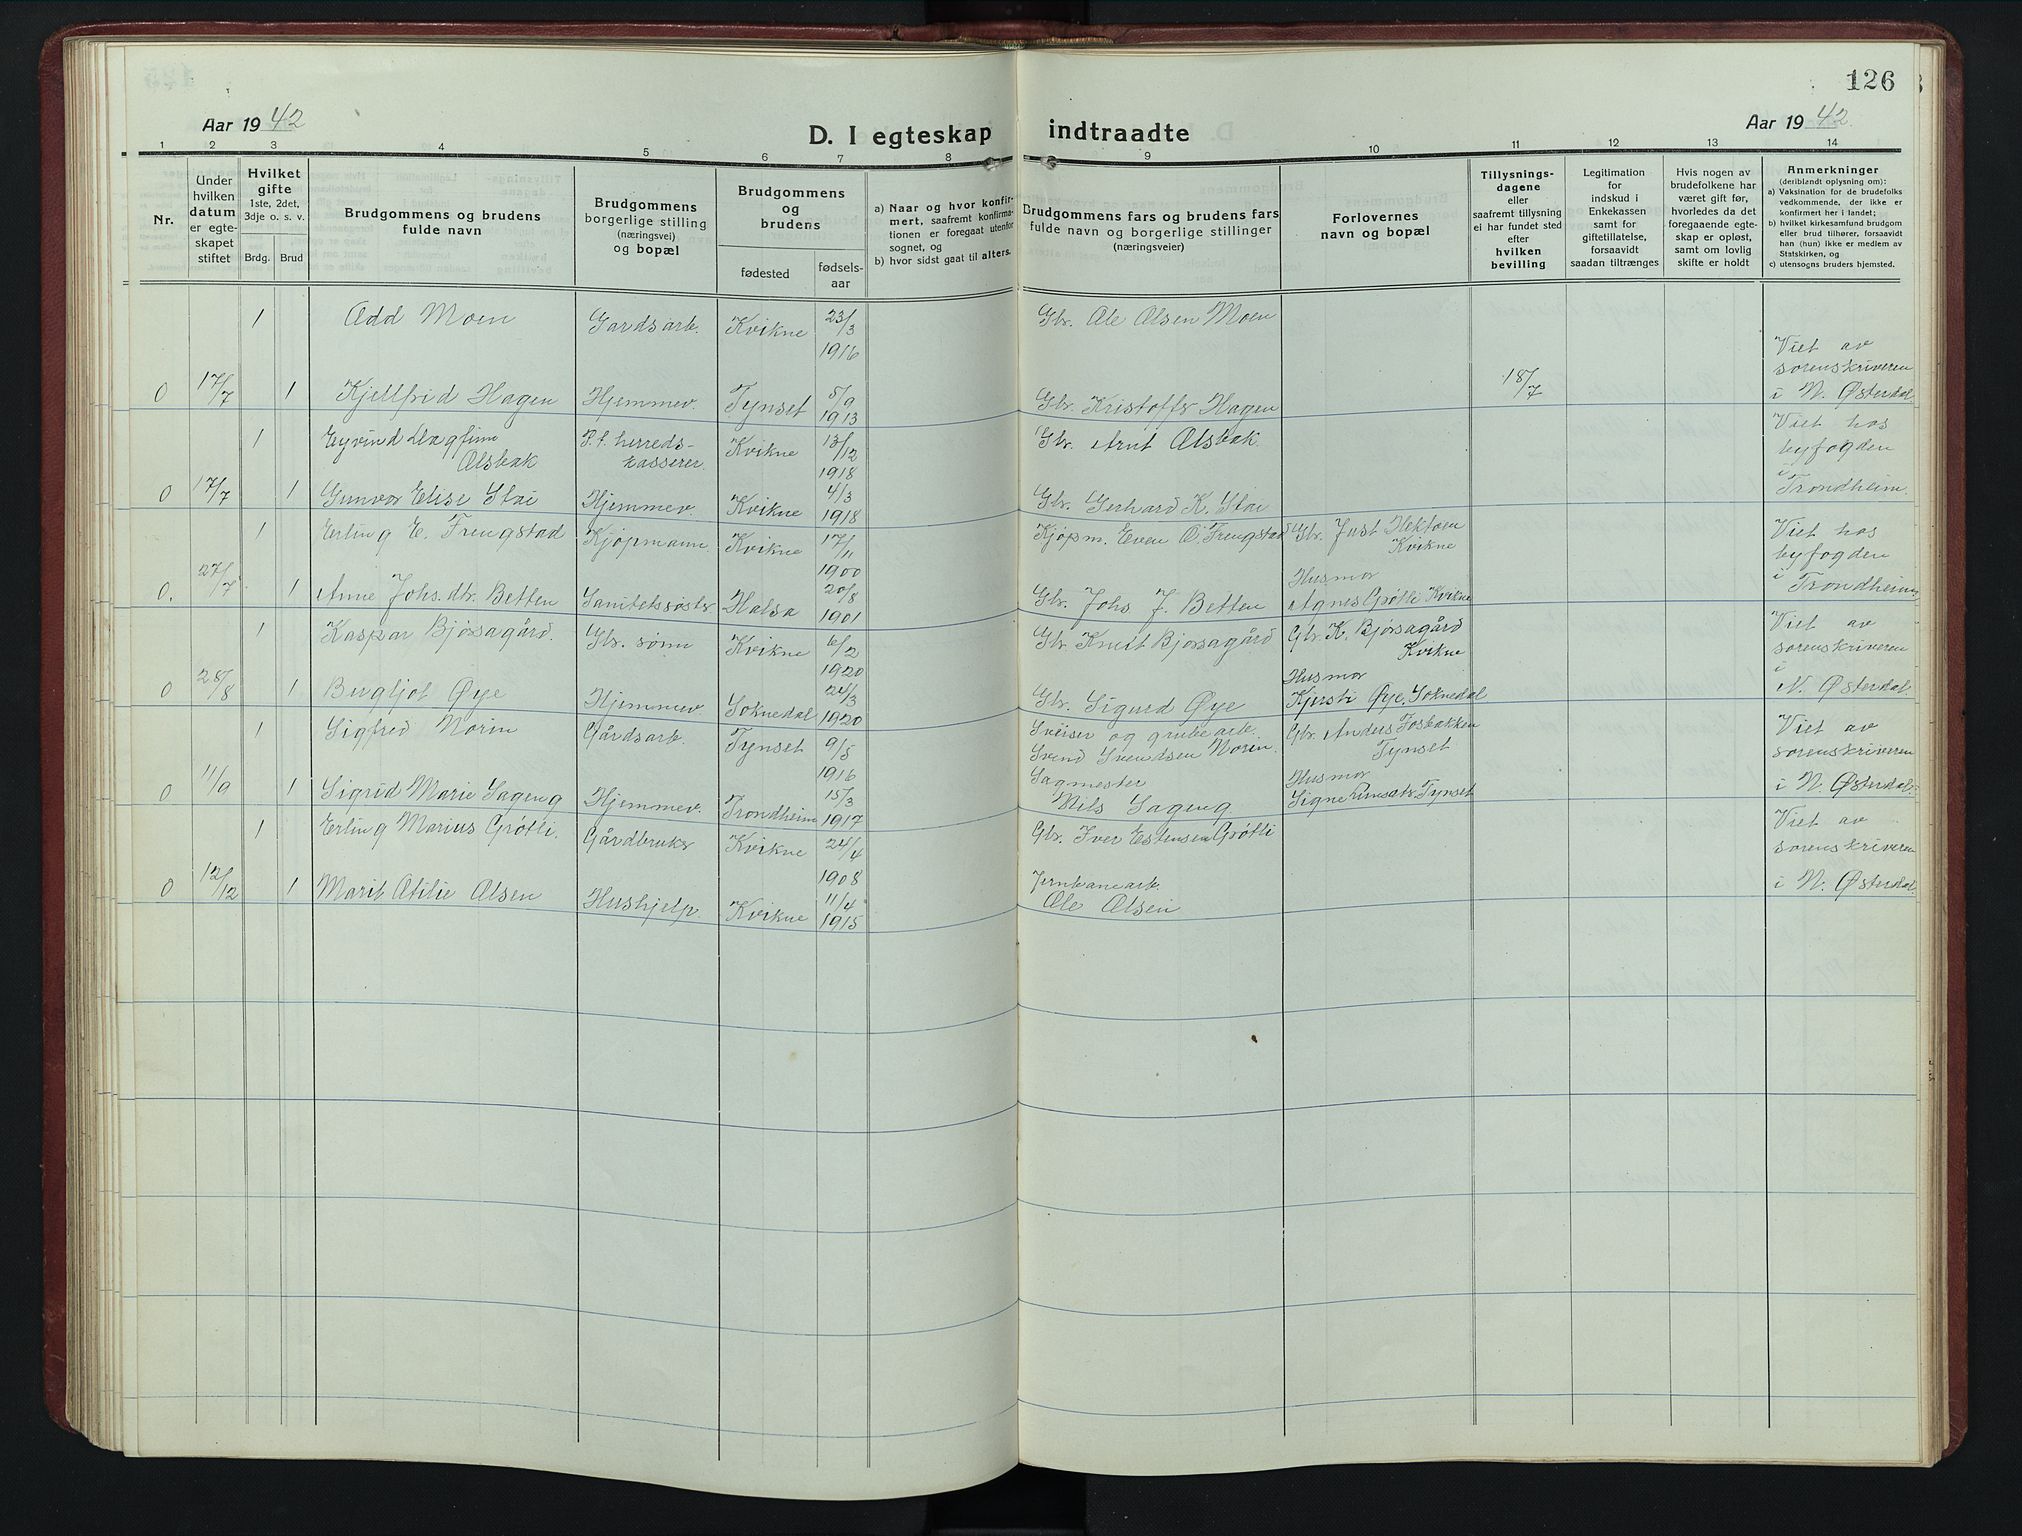 126
Aar 1942
D. I egteskap indtraadte
Aar 1942.
1 2 3 4 5 6 7 8 9 10 11 12 13 14
Nr.
Under
hvilken
datum
er egte-
skapet
stiftet
Hvilket
gifte
1ste, 2det,
3dje o. s. v.
Brdg. Brud
Brudgommens og brudens
fulde navn
Brudgommens
borgerlige stilling
(næringsvei)
og bopæl
Brudgommens
og
brudens
fødested
fødsels-
aar
a) Naar og hvor konfir-
mert, saafremt konfirma-
tionen er foregaat utenfor
sognet, og
b) hvor sidst gaat til alters.
Brudgommens fars og brudens fars
fulde navn og borgerlige stillinger
(næringsveier)
Forlovernes
navn og bopæl
Tillysnings-
dagene
eller
saafremt tillysning
ei har fundet sted
efter
hvilken
bevilling
Legitimation
for
indskud i
Enkekassen
samt for
giftetillatelse,
forsaavidt
saadan tiltrænges
Hvis nogen av
brudefolkene har
været gift før,
hvorledes da det
foregaaende egte-
skap er opløst,
samt om lovlig
skifte er holdt
Anmerkninger
(deriblandt oplysning om):
a) Vaksination for de brudefolks
vedkommende, der ikke er
konfirmert her i landet;
b) hvilket kirkesamfund brudgom
eller brud tilhører, forsaavidt
han (hun) ikke er medlem av
Statskirken, og
c) utensogns bruders hjemsted.
1 Odd Moen Gardsarb. Kvikne 23/3 1916 Gbr. Ole Olsen Moen
0 17/7 1 Kjellfrid Hagen Hjemmev. Tynset 5/9 1913 Gbr. Kristoffer Hagen 18/7
Viet av
sorenskriveren
i N. Østerdal.
1 Eyvind Dagfinn
Olsbak
herreds-
kasserer.
Kvikne 13/12 1918 Gbr. Arnt Olsbak.
0 17/7 1 Gunvor Elise Stai Hjemmev. Kvikne 4/3 1918 Gbr. Gerhard K. Stai
Viet hos
byfogden
i
Trondheim.
1 Erling E. Frengstad Kjøpmann Kvikne 17/11 1900 Kjøpm. Even O. Frengstad Gbr. Just Hektoen
Kvikne
0. 27/7 1 Anne Johs.dtr. Betten Sanitetssøster Halsa 20/8 1901 Gbr. Johs J. Betten
Husmor
Agnes Grøtli Kvikne
Viet hos
byfogden
i
Trondheim.
1 Kaspar Bjørsagård. Gbr. sønn Kvikne 6/2 1920 Gbr. Knut Bjørsagård Gbr. K. Bjørsagård
Kvikne
0 28/8 1 Bergljot Øye Hjemmev. Soknedal 24/3 1920 Gbr. Sigurd Øye
Husmor
Kjersti Øye, Soknedal
Viet av
sorenskriveren
i
N. Østerdal.
1 Sigfred Norin Gårdsarb. Tynset 9/5 1916
Sveiser og grubearb.
Svend Svendsen Norin.
Gbr. Anders Fosbakken
Tynset
0 11/9 1 Sigrid Marie Sageng Hjemmev. Trondheim 15/3 1917
Sagmester
Nils Sageng
Husmor
Signe Tynset
Viet av
sorenskriveren
i N. Østerdal.
1 Erling Marius Grøtli. Gårdbruker Kvikne 24/4 1908 Gbr. Iver Estensen Grøtli
0 12/12 1 Marit Otilie Olsen Hushjelp. Kvikne 11/4 1915
Jernbanearb.
Ole Olsen
Viet av
sorenskriveren
i N. Østerdal.